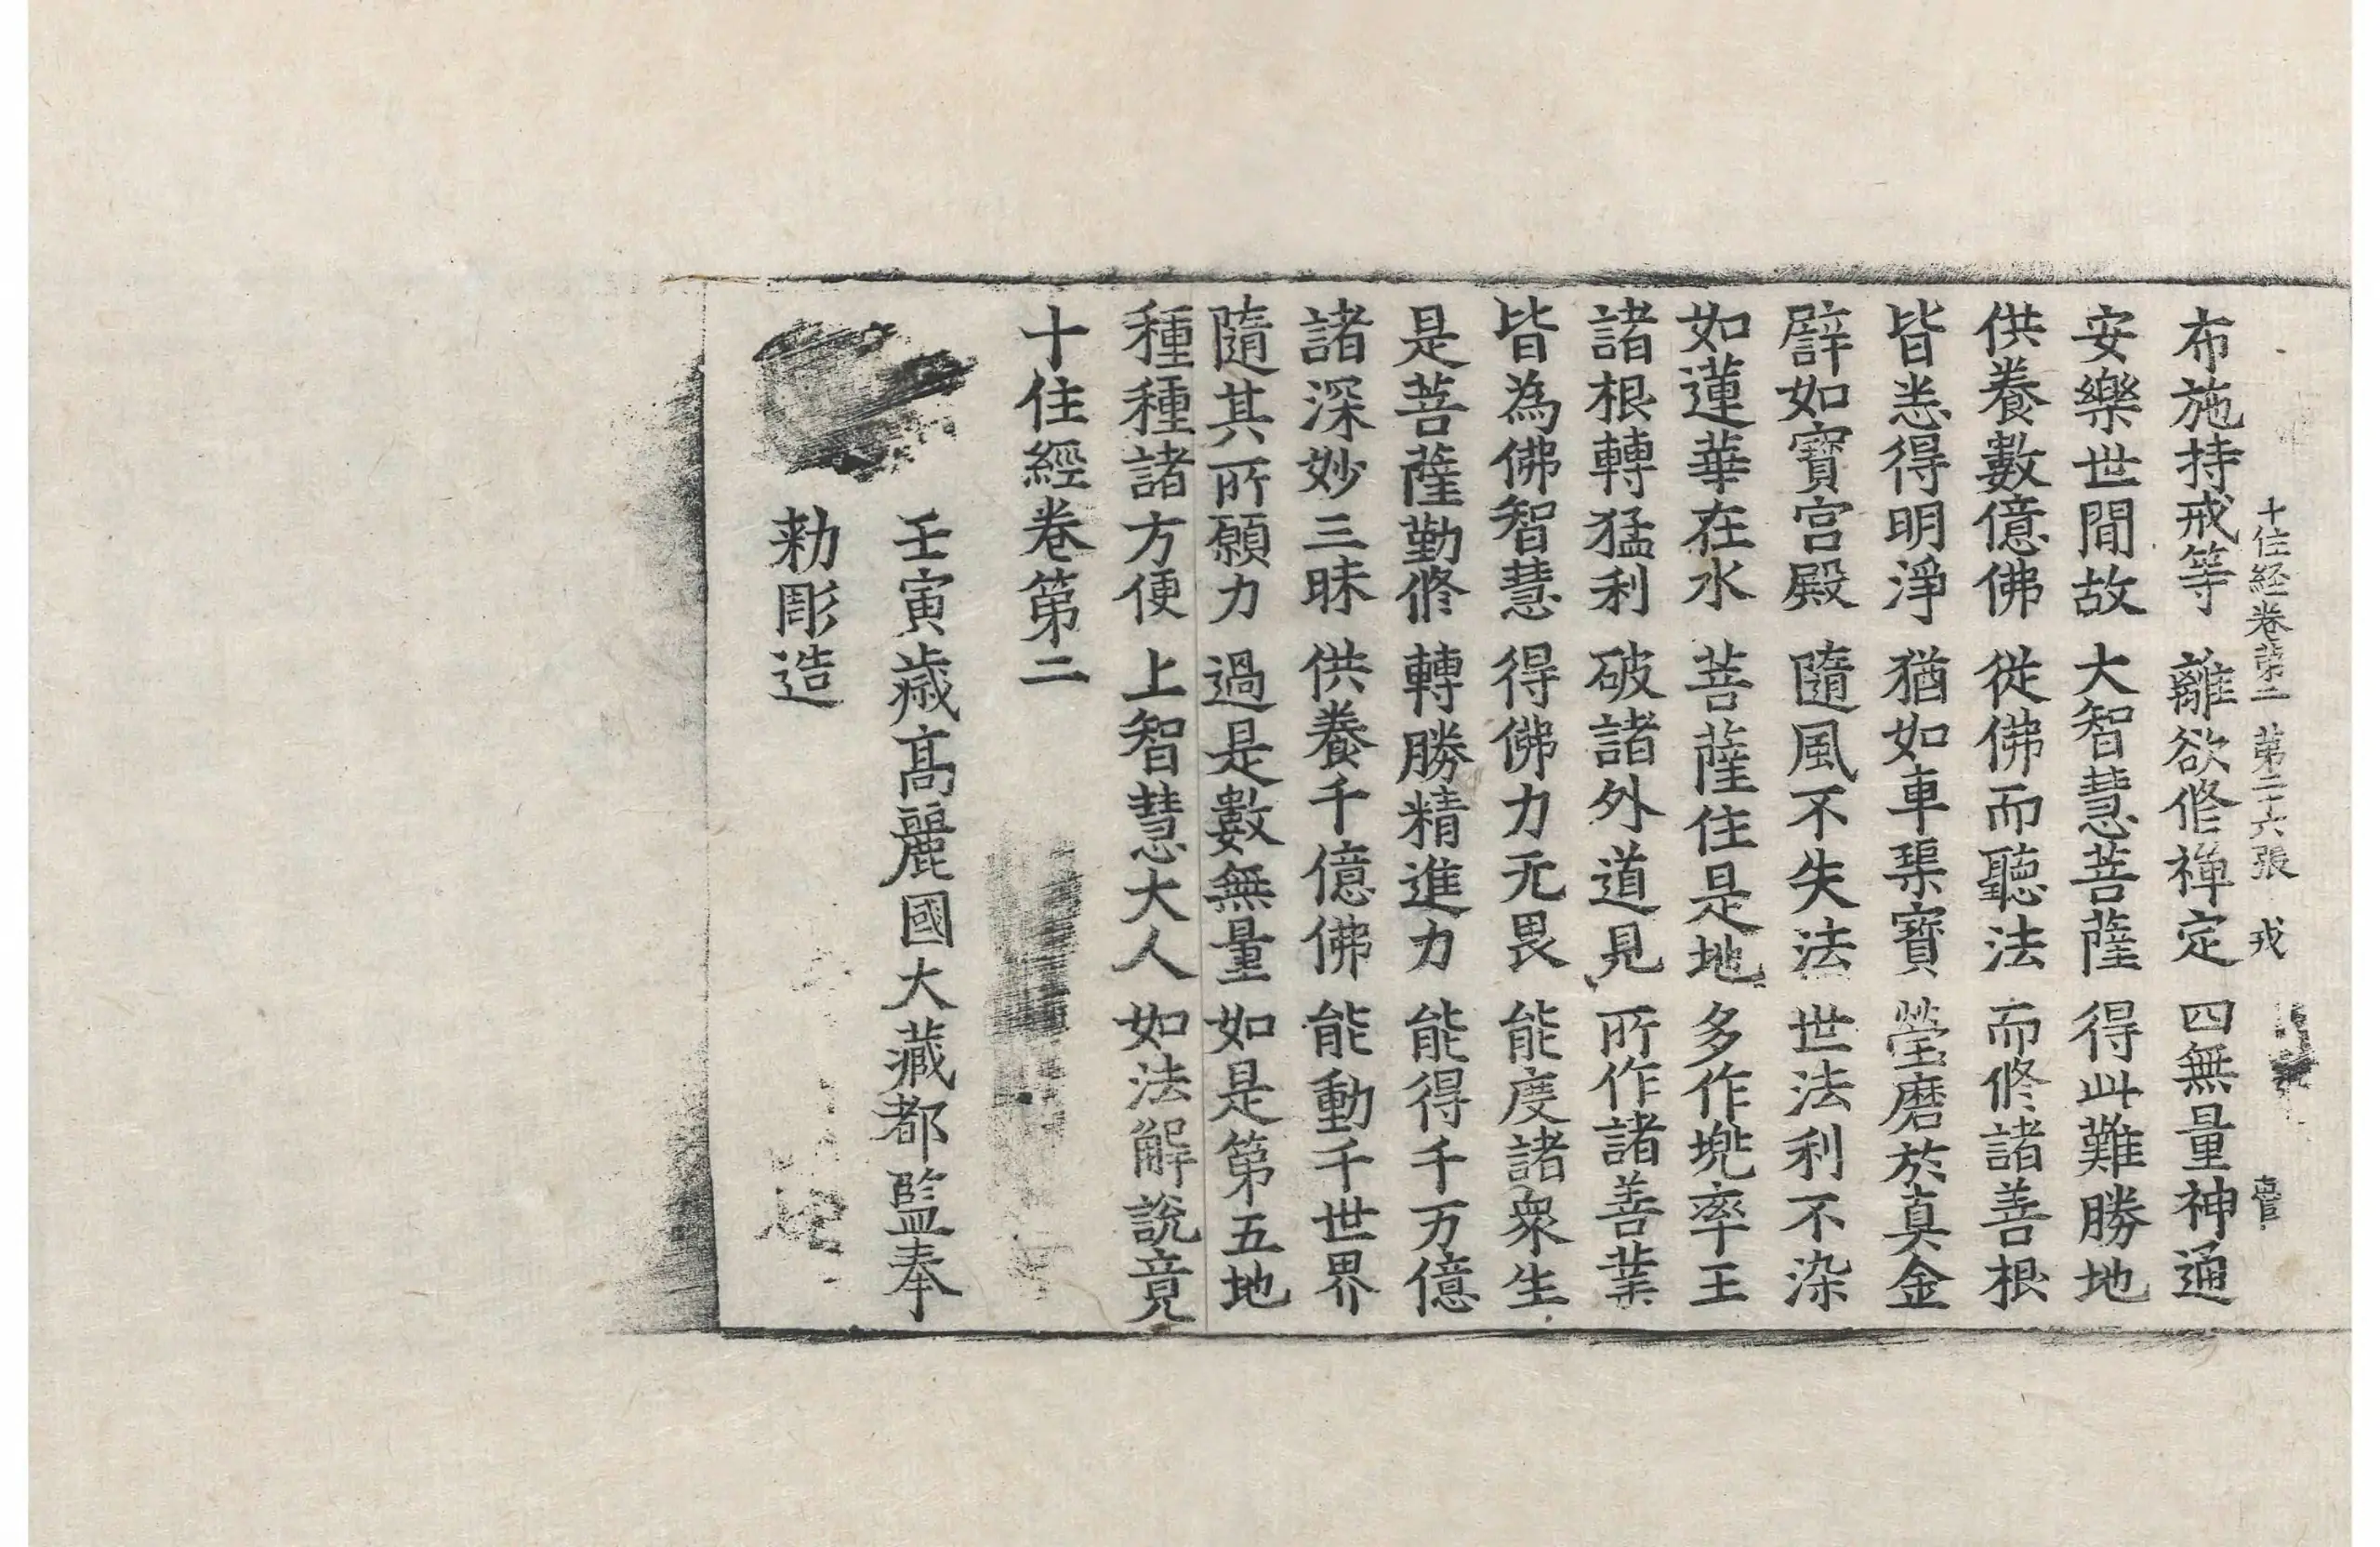 十住経卷第二 第二十六張 戎
布施持戒等 離欲修禪定 四無量神通
安樂世間故 大智慧菩薩 得此難勝地
供養數億佛 從佛而聽法 而修諸善根
皆悉得明淨 猶如車璖寶 瑩磨於真金
譬如寶宮殿 隨風不失法 世法利不染
如蓮華在水 菩薩住是地 多作兠率王
諸根轉猛利 破諸外道見 所作諸善業
皆為佛智慧 得佛力无畏 能度諸衆生
是菩薩勤修 轉勝精進力 能得千万億
諸深妙三昧 供養千億佛 能動千世界
隨其所願力 過是數無量 如是第五地
種種諸方便 上智慧大人 如法解說竟
十住經卷第二
壬寅歲高麗國大藏都監奉
勅彫造